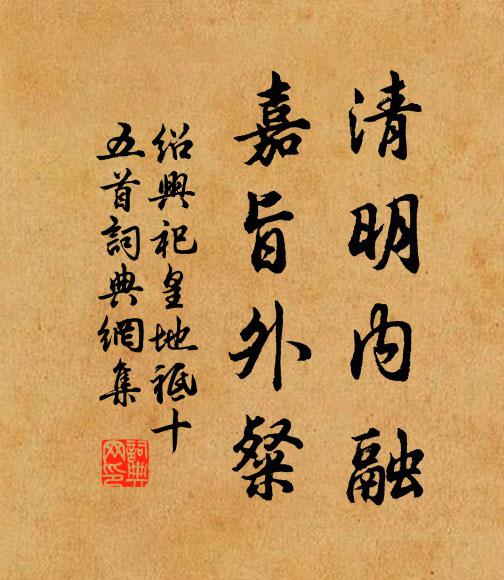 清明内融
嘉旨外粲
绍興祀皇地祗十
五首詞典網集
詞典
网印